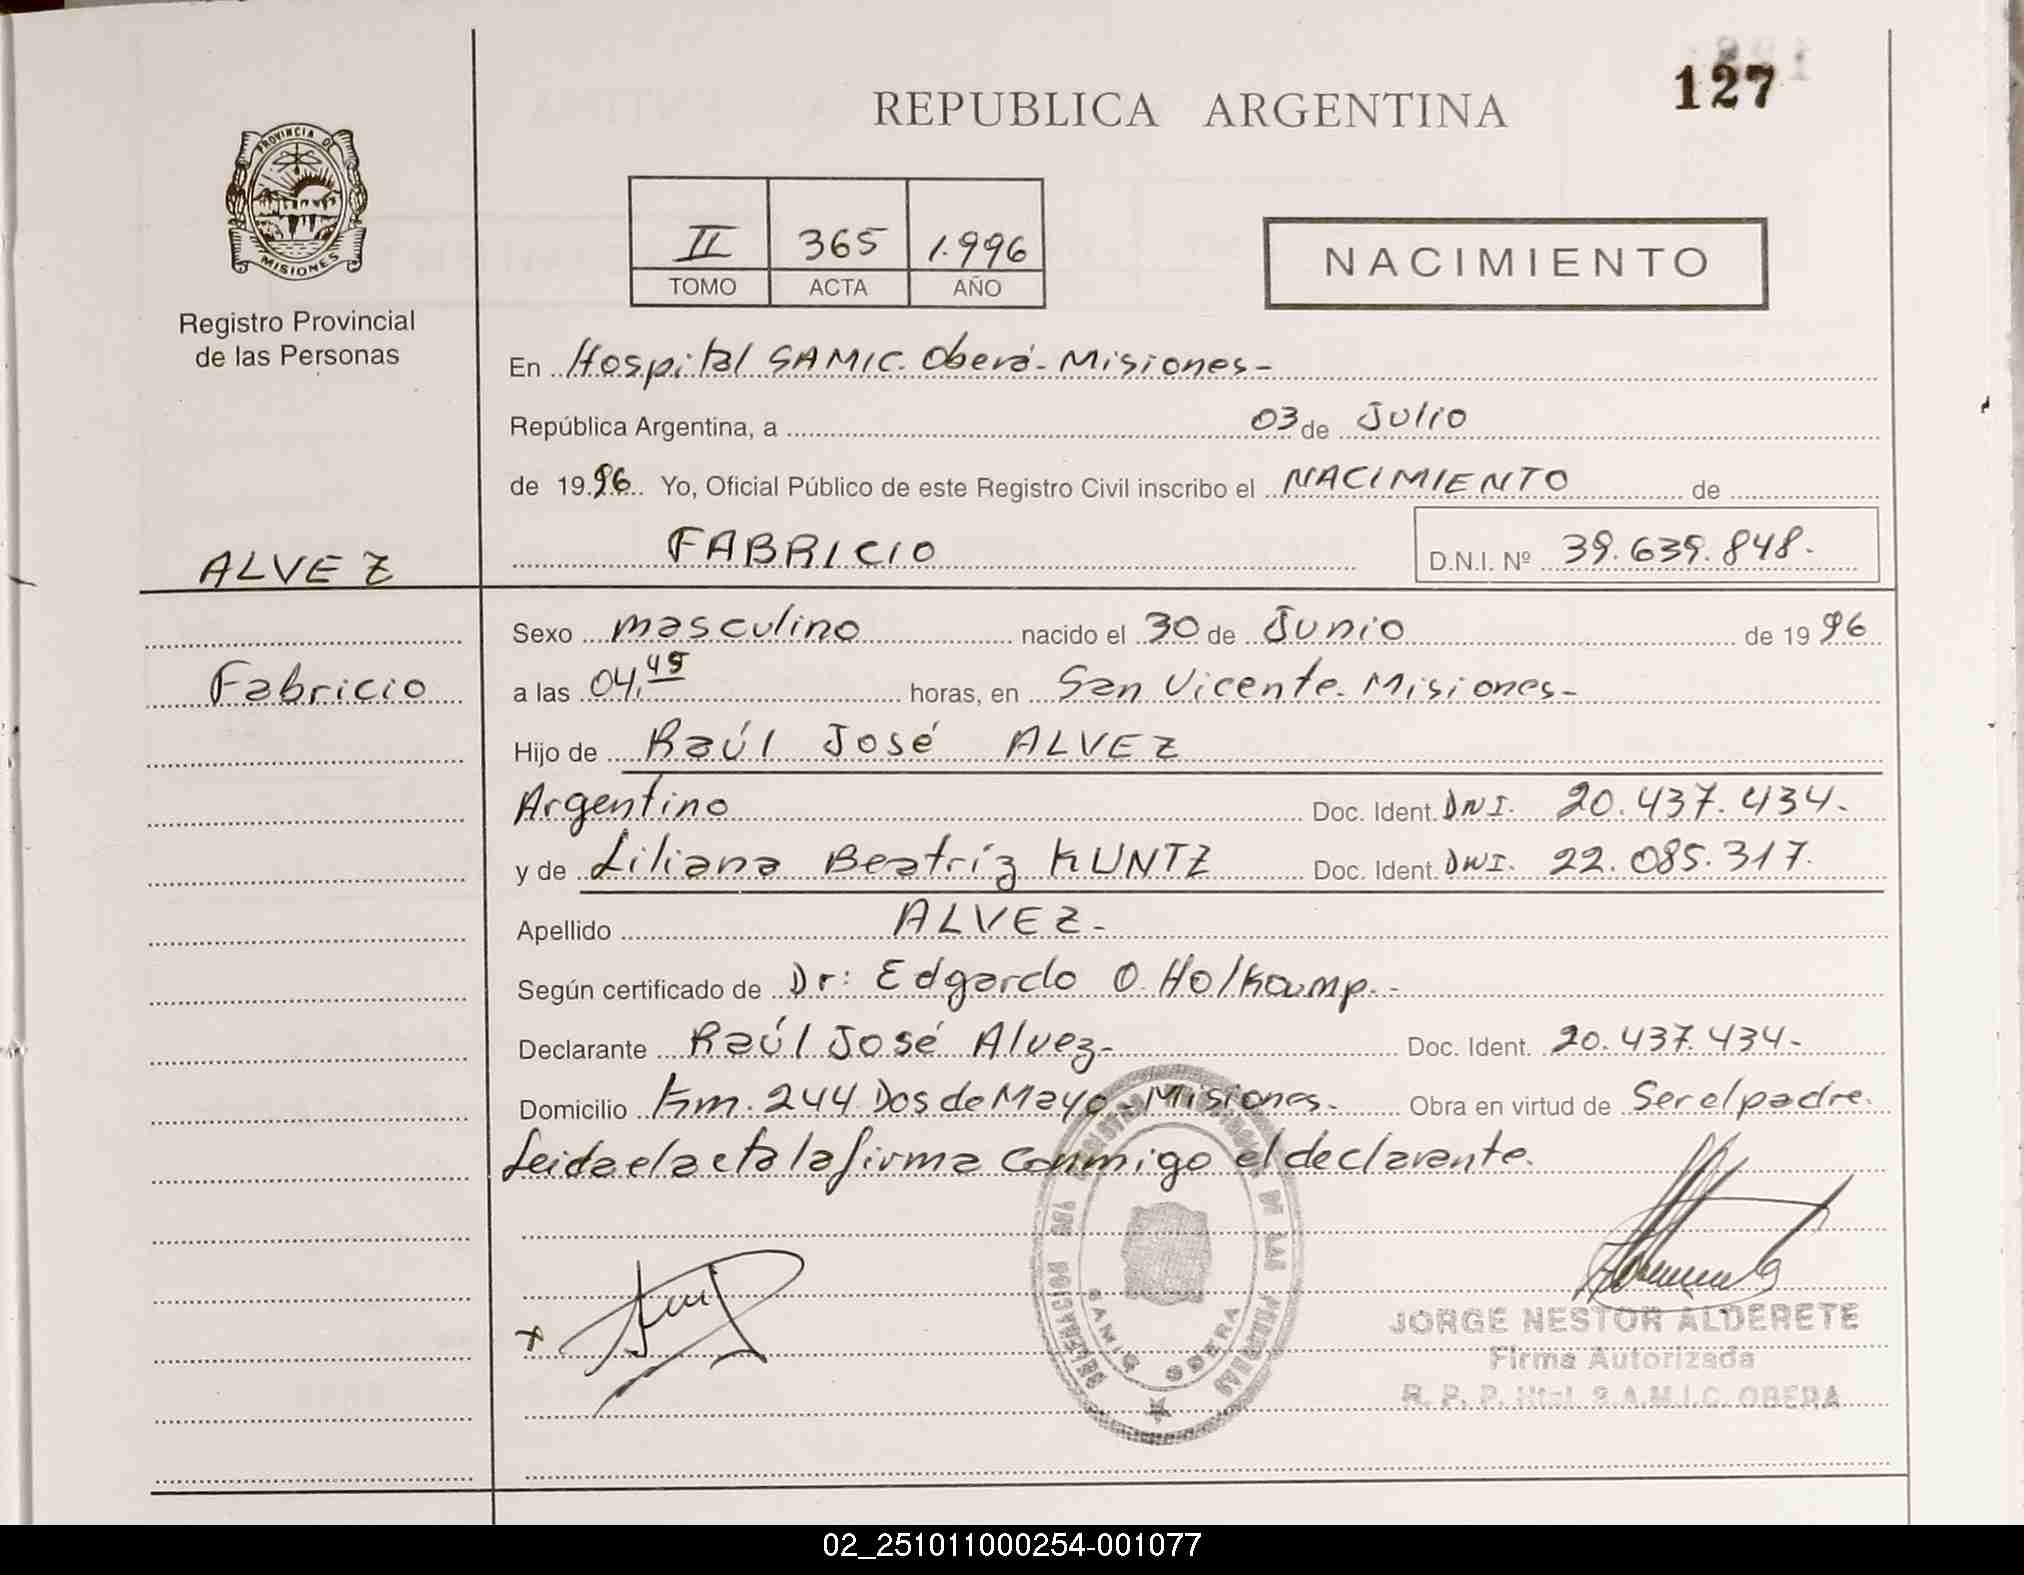 127
REPUBLICA ARGENTINA
PROVINCIA DE
MISIONES
Registro Provincial
de las Personas
II 365 1.996
TOMO ACTA AÑO
NACIMIENTO
En Hospital SAMIC. Oberá - Misiones -
República Argentina, a 03 de Julio
de 1996 Yo, Oficial Público de este Registro Civil inscribo el NACIMIENTO de
ALVEZ
FABRICIO D.N.I. Nº 39.639.848.
Sexo masculino nacido el 30 de Junio de 1996
Fabricio
a las 04,45 horas, en San Vicente - Misiones -
Hijo de Raúl José ALVEZ
Argentino Doc. Ident. DNI. 20.437.434.-
y de Liliana Beatríz KUNTZ Doc. Ident. DNI. 22.085.317.
Apellido ALVEZ -
Según certificado de Dr: Edgardo O. Holkamp. -
Declarante Raúl José Alvez - Doc. Ident. 20.437.434 -
Domicilio Km. 244 Dos de Mayo - Misiones - Obra en virtud de Ser el padre.
Leida el acta la firma conmigo el declarante.
DE LAS PERSONAS
SAMIC OBERA
JORGE NESTOR ALDERETE
Firma Autorizada
R. P. P. Htal. S.A.M.I.C. OBERA
02_251011000254-001077